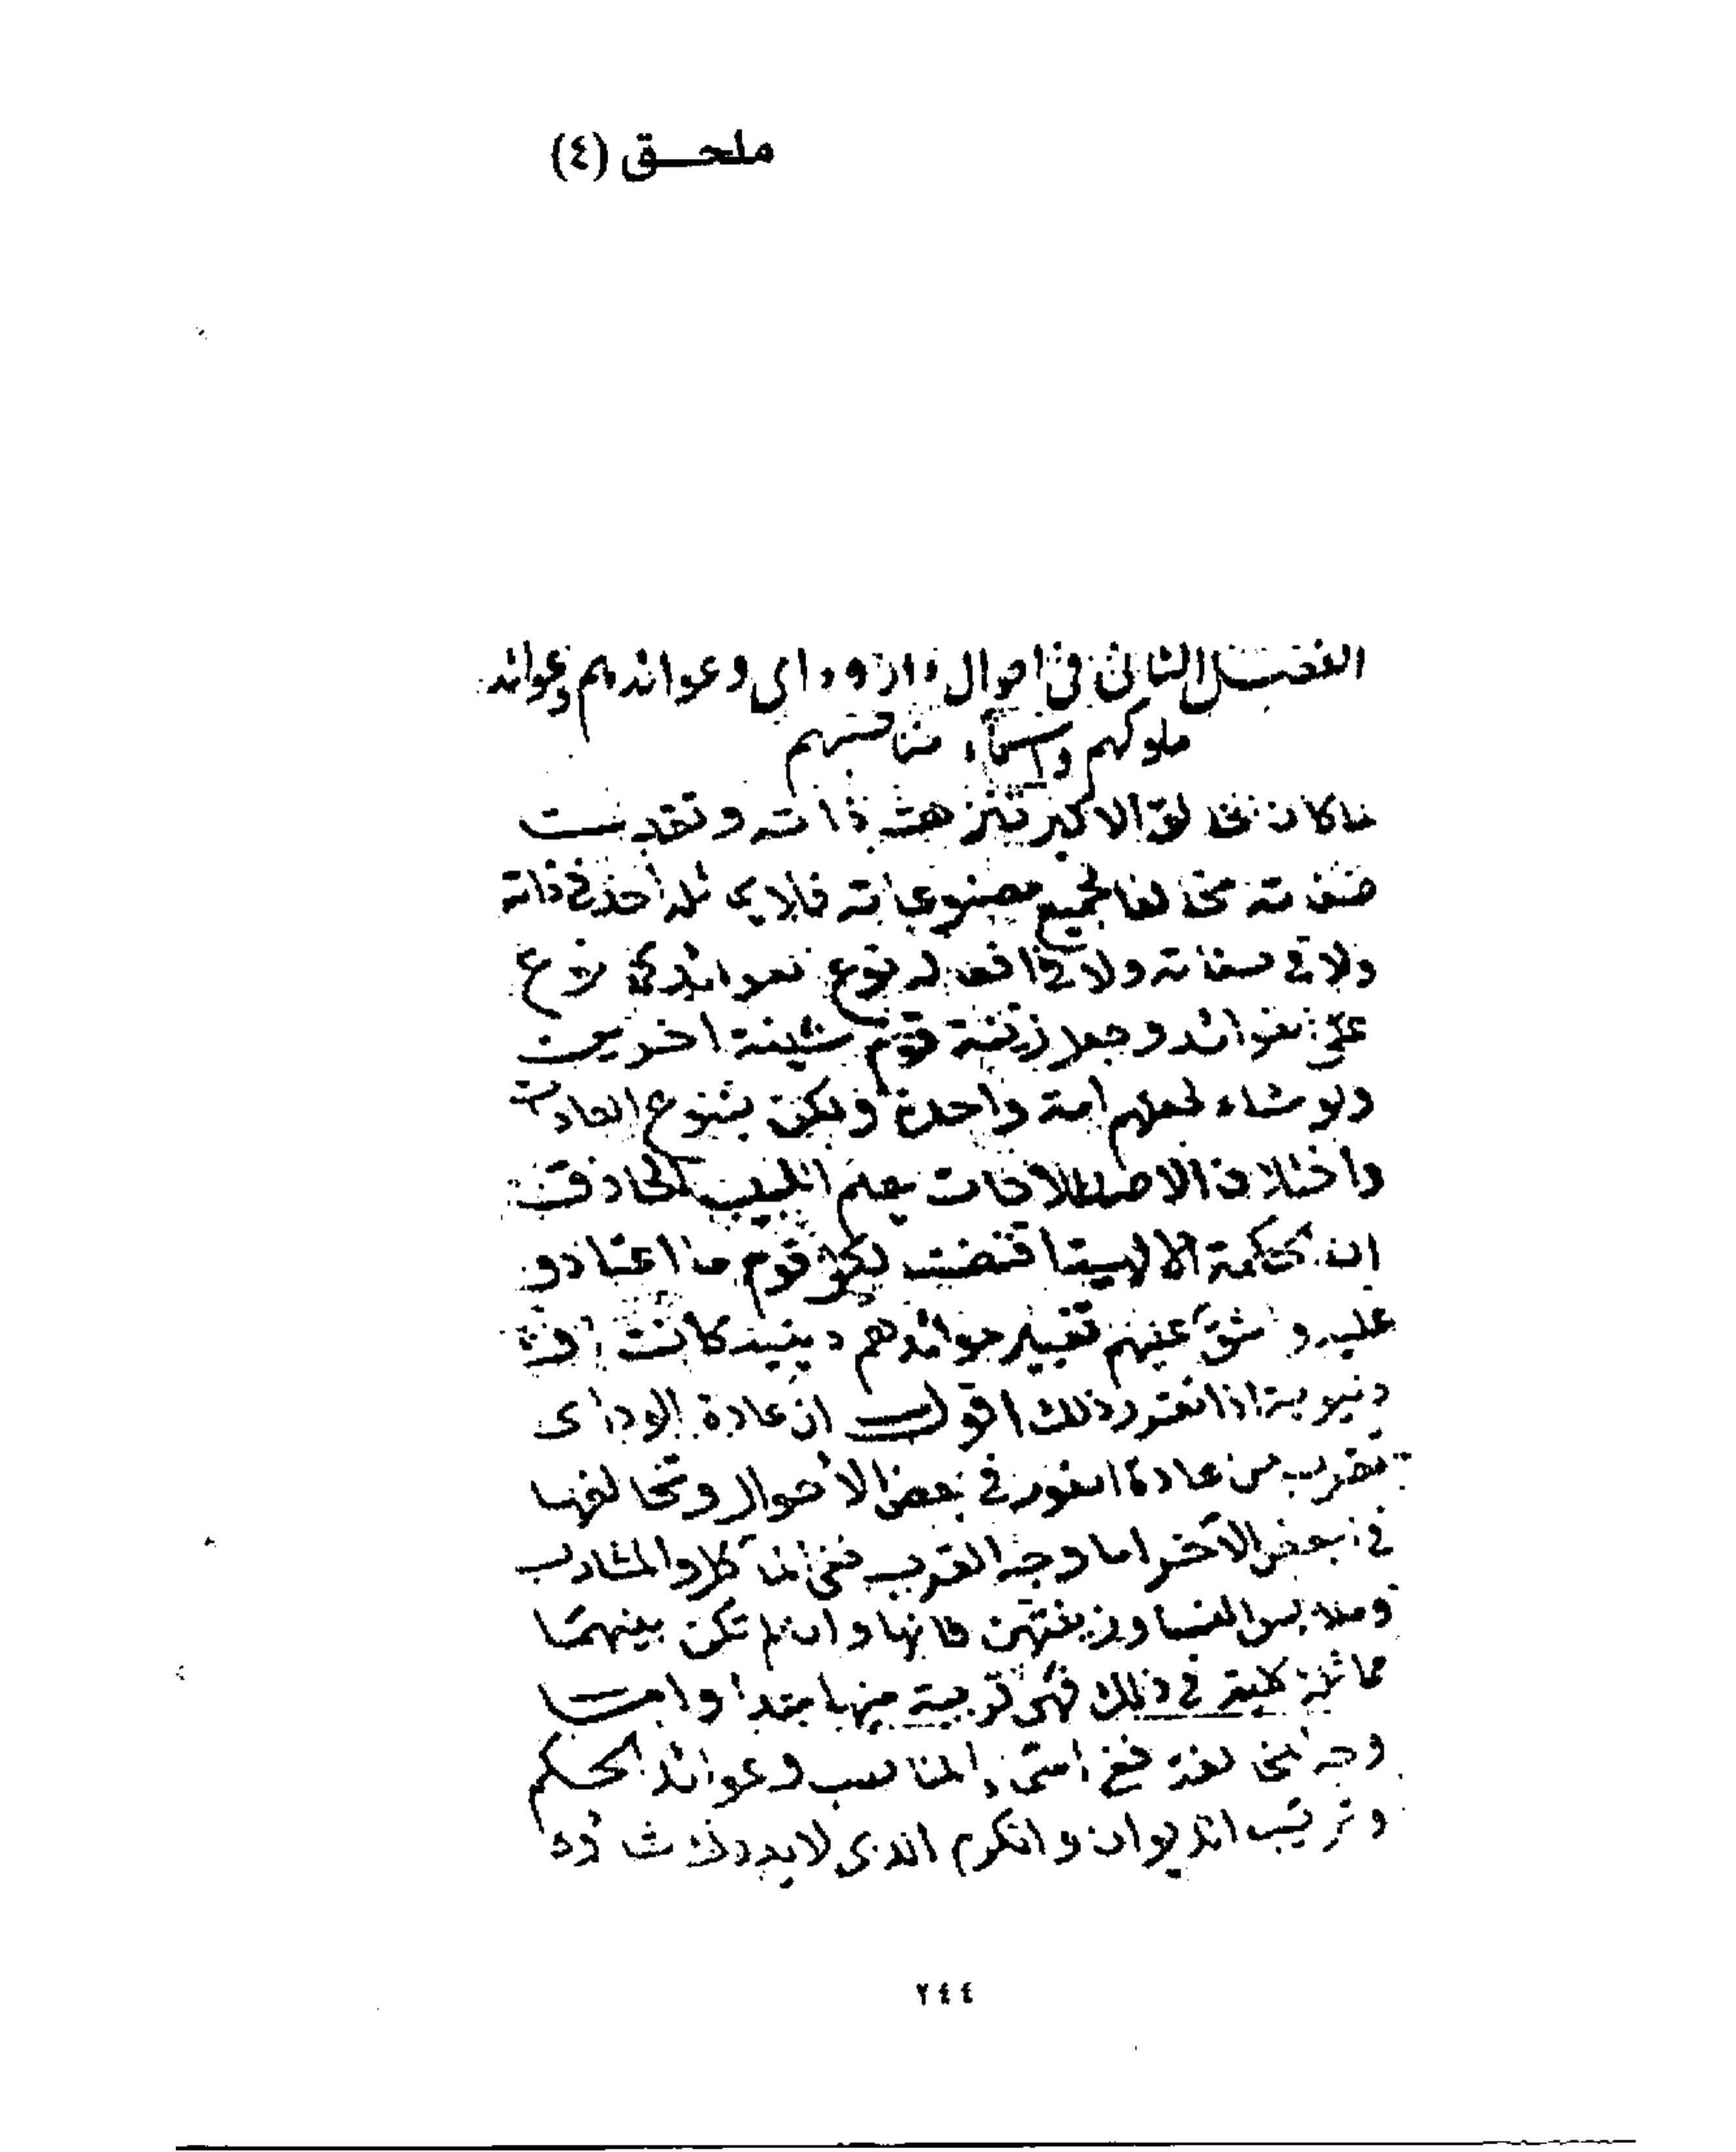 ملحق (٤)
الفصل الثانى فى احوال دار وداى وعوائدهم وعوائد
ملوكهم واسماء مناصبهم
لما كان الخالق الاكبر تنزهت ذاته وتقدست
صفاته مخالفا لجميع مصنوعاته فلا يماثله احد فى ذاته
ولا فى صفاته ولا فى افعاله نوع عوائد كل نوع
على عوائد وجعل زينة قوم شينة اخرين
ولو شاء لجعلهم امة واحدة ولكن بتنوع العادات
واختلاف الاصطلاحات يعلم اللبيب الحاذق
ان الحكمة الالهية اقتضت لكل قوم ما اعتادو
عليه وشق عليهم تغيير عوائدهم دينية كانت او
دنيوية اذا تقرر ذلك اقول ان عادة الوداى
تقرب من عادة الفور فى بعض الاحوال وتخالفها
فى بعض الاخر اما وجه القرب ففى المآكل والمشارب
وملابس النسا وزينتهن فانها وان لم تكن بينهما
مماثلة كلية فى ذلك فهى قريبة منها جدا واما
وجه المخالفة ففى اسماء المناصب وعوائد الحكم
وترتيب الديوان والكرم الذى لا يدرك شاوه
٢٤٤